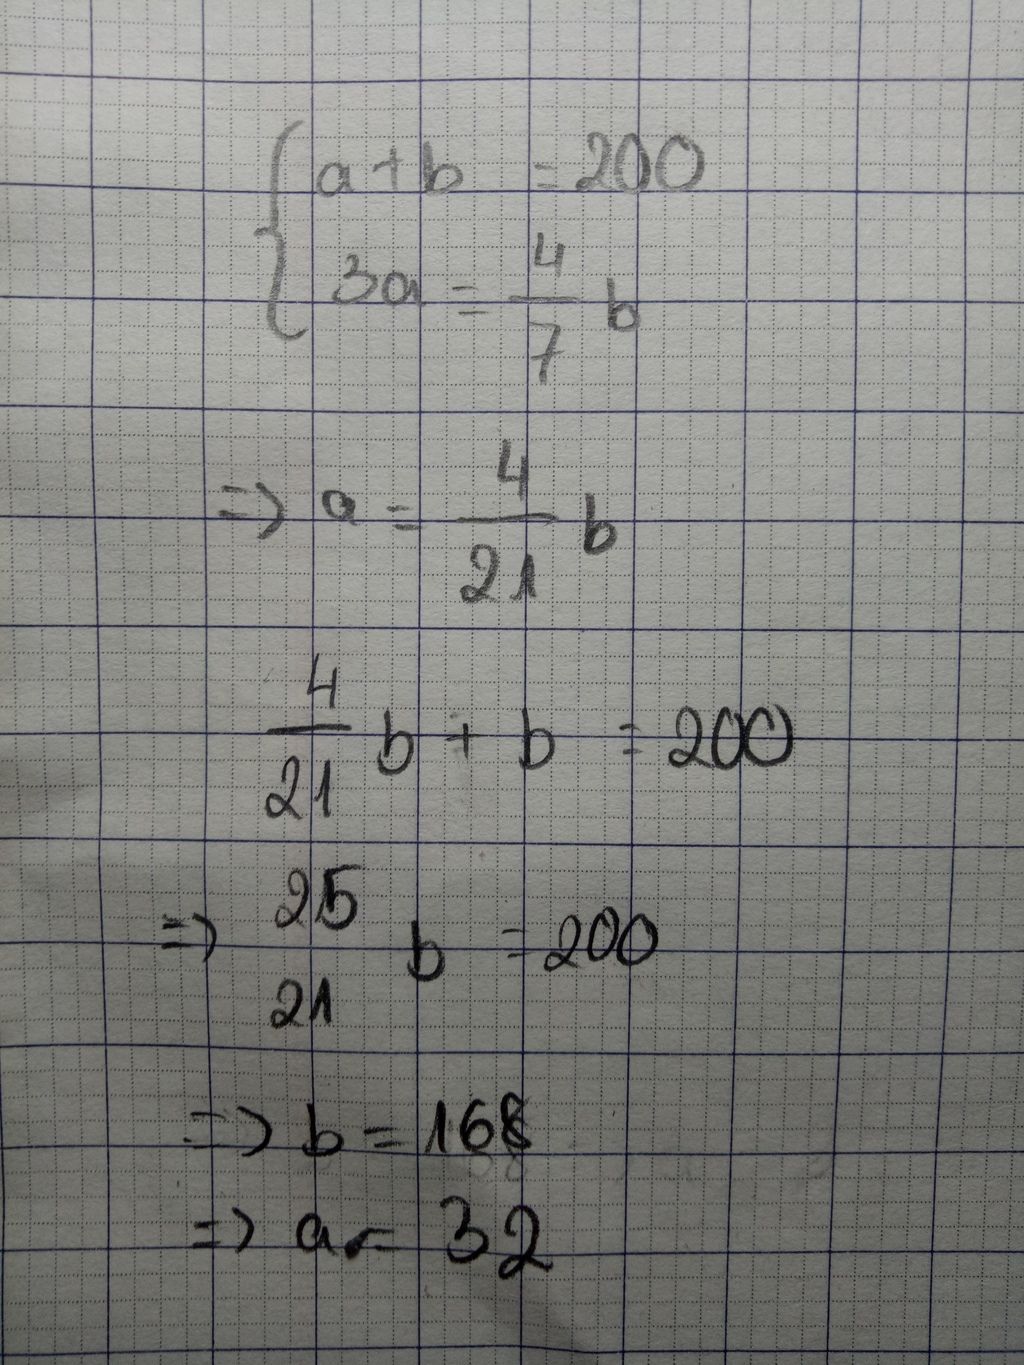 { a + b = 200
3a = 4/7 b
=> a = 4/21 b
4/21 b + b = 200
=> 25/21 b = 200
=> b = 168
=> a = 32